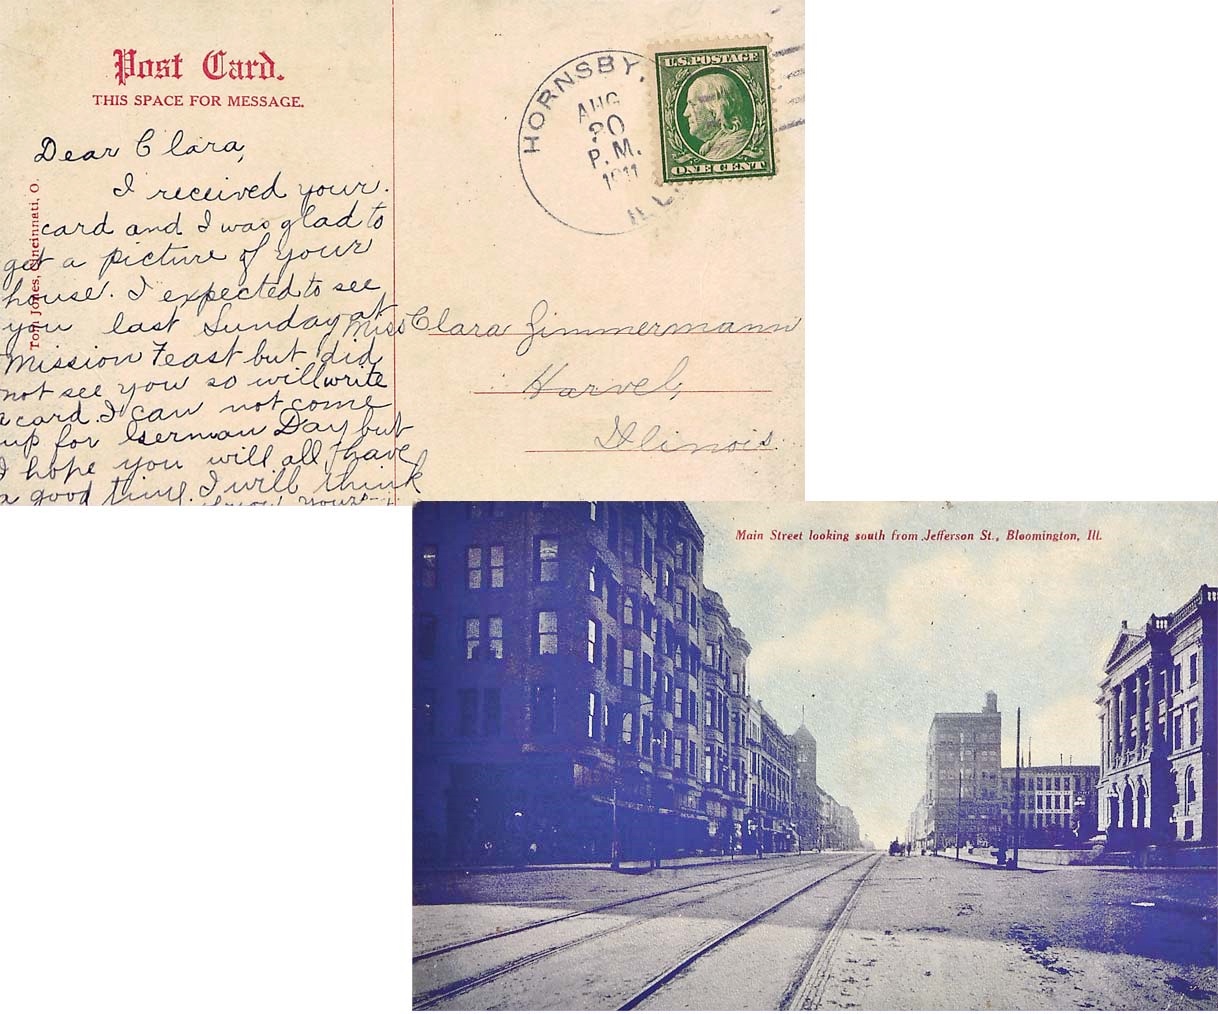 Post Card.
THIS SPACE FOR MESSAGE.
Tom Jones, Cincinnati, O.
Dear Clara,
I received your
card and I was glad to
get a picture of your
house. I expected to see
you last Sunday at
Mission Feast but did
not see you so will write
a card. I can not come
up for German Day but
I hope you will all have
a good time. I will think
HORNSBY,
AUG
20
P. M.
1911
ILL
U.S. POSTAGE
ONE CENT
Miss Clara Zimmermann
Harvel,
Illinois.
Main Street looking south from Jefferson St., Bloomington, Ill.